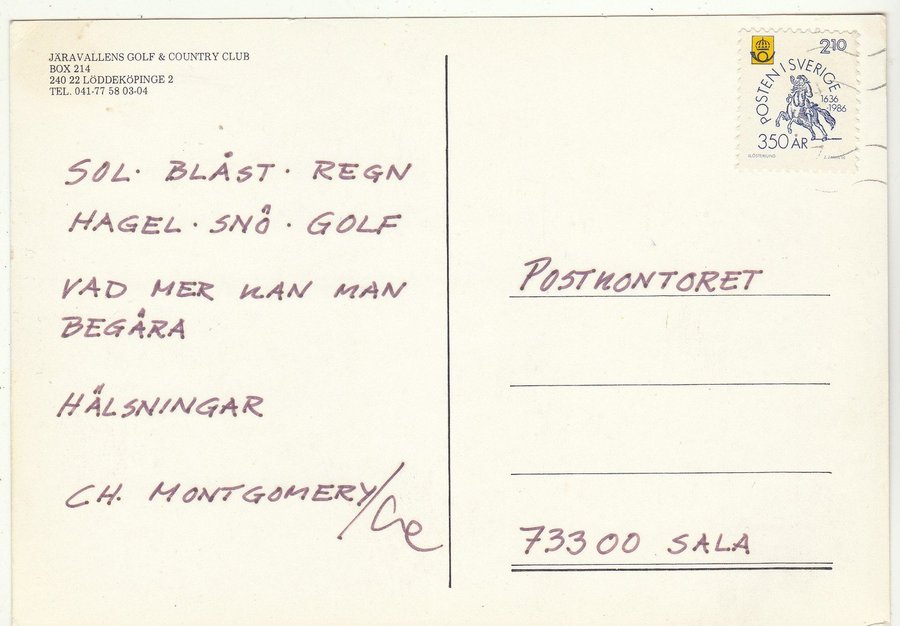 JÄRAVALLENS GOLF & COUNTRY CLUB
BOX 214
240 22 LÖDDEKÖPINGE 2
TEL. 041-77 58 03-04
SOL · BLÅST · REGN
HAGEL · SNÖ · GOLF
VAD MER KAN MAN
BEGÄRA
HÄLSNINGAR
CH. MONTGOMERY/
210
POSTEN I SVERIGE
1636
1986
350 ÅR
POSTKONTORET
73300 SALA